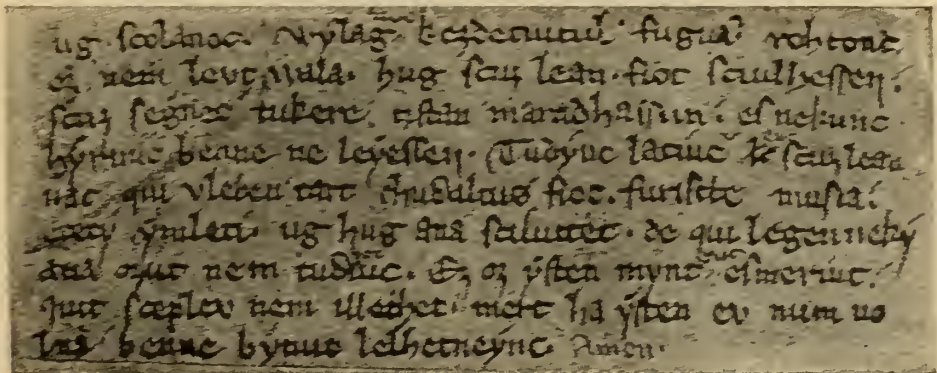 ug scolanoc. Wylag kezdetuitul fugua rohtonc
ez nem levt vala. hug scuz lean fiot sciulhessen.
scuz segnec tukere tistan maradhassun. es nekunc
hyrunc benne ne leyessen. Tudyuc latiuc evt scuz lean
nac qui vleben tart chudaltus fiot. furiscte musia.
etety ymleti. ug hug ana sciluttet. de qui legen neky
atia ozut nem tudhuc. Ez oz ysten mynt evt esmeriuc.
quit sceplev nem illethet. mert ha ysten ev num uo
lna benne bynut lelhetneync. Amen.